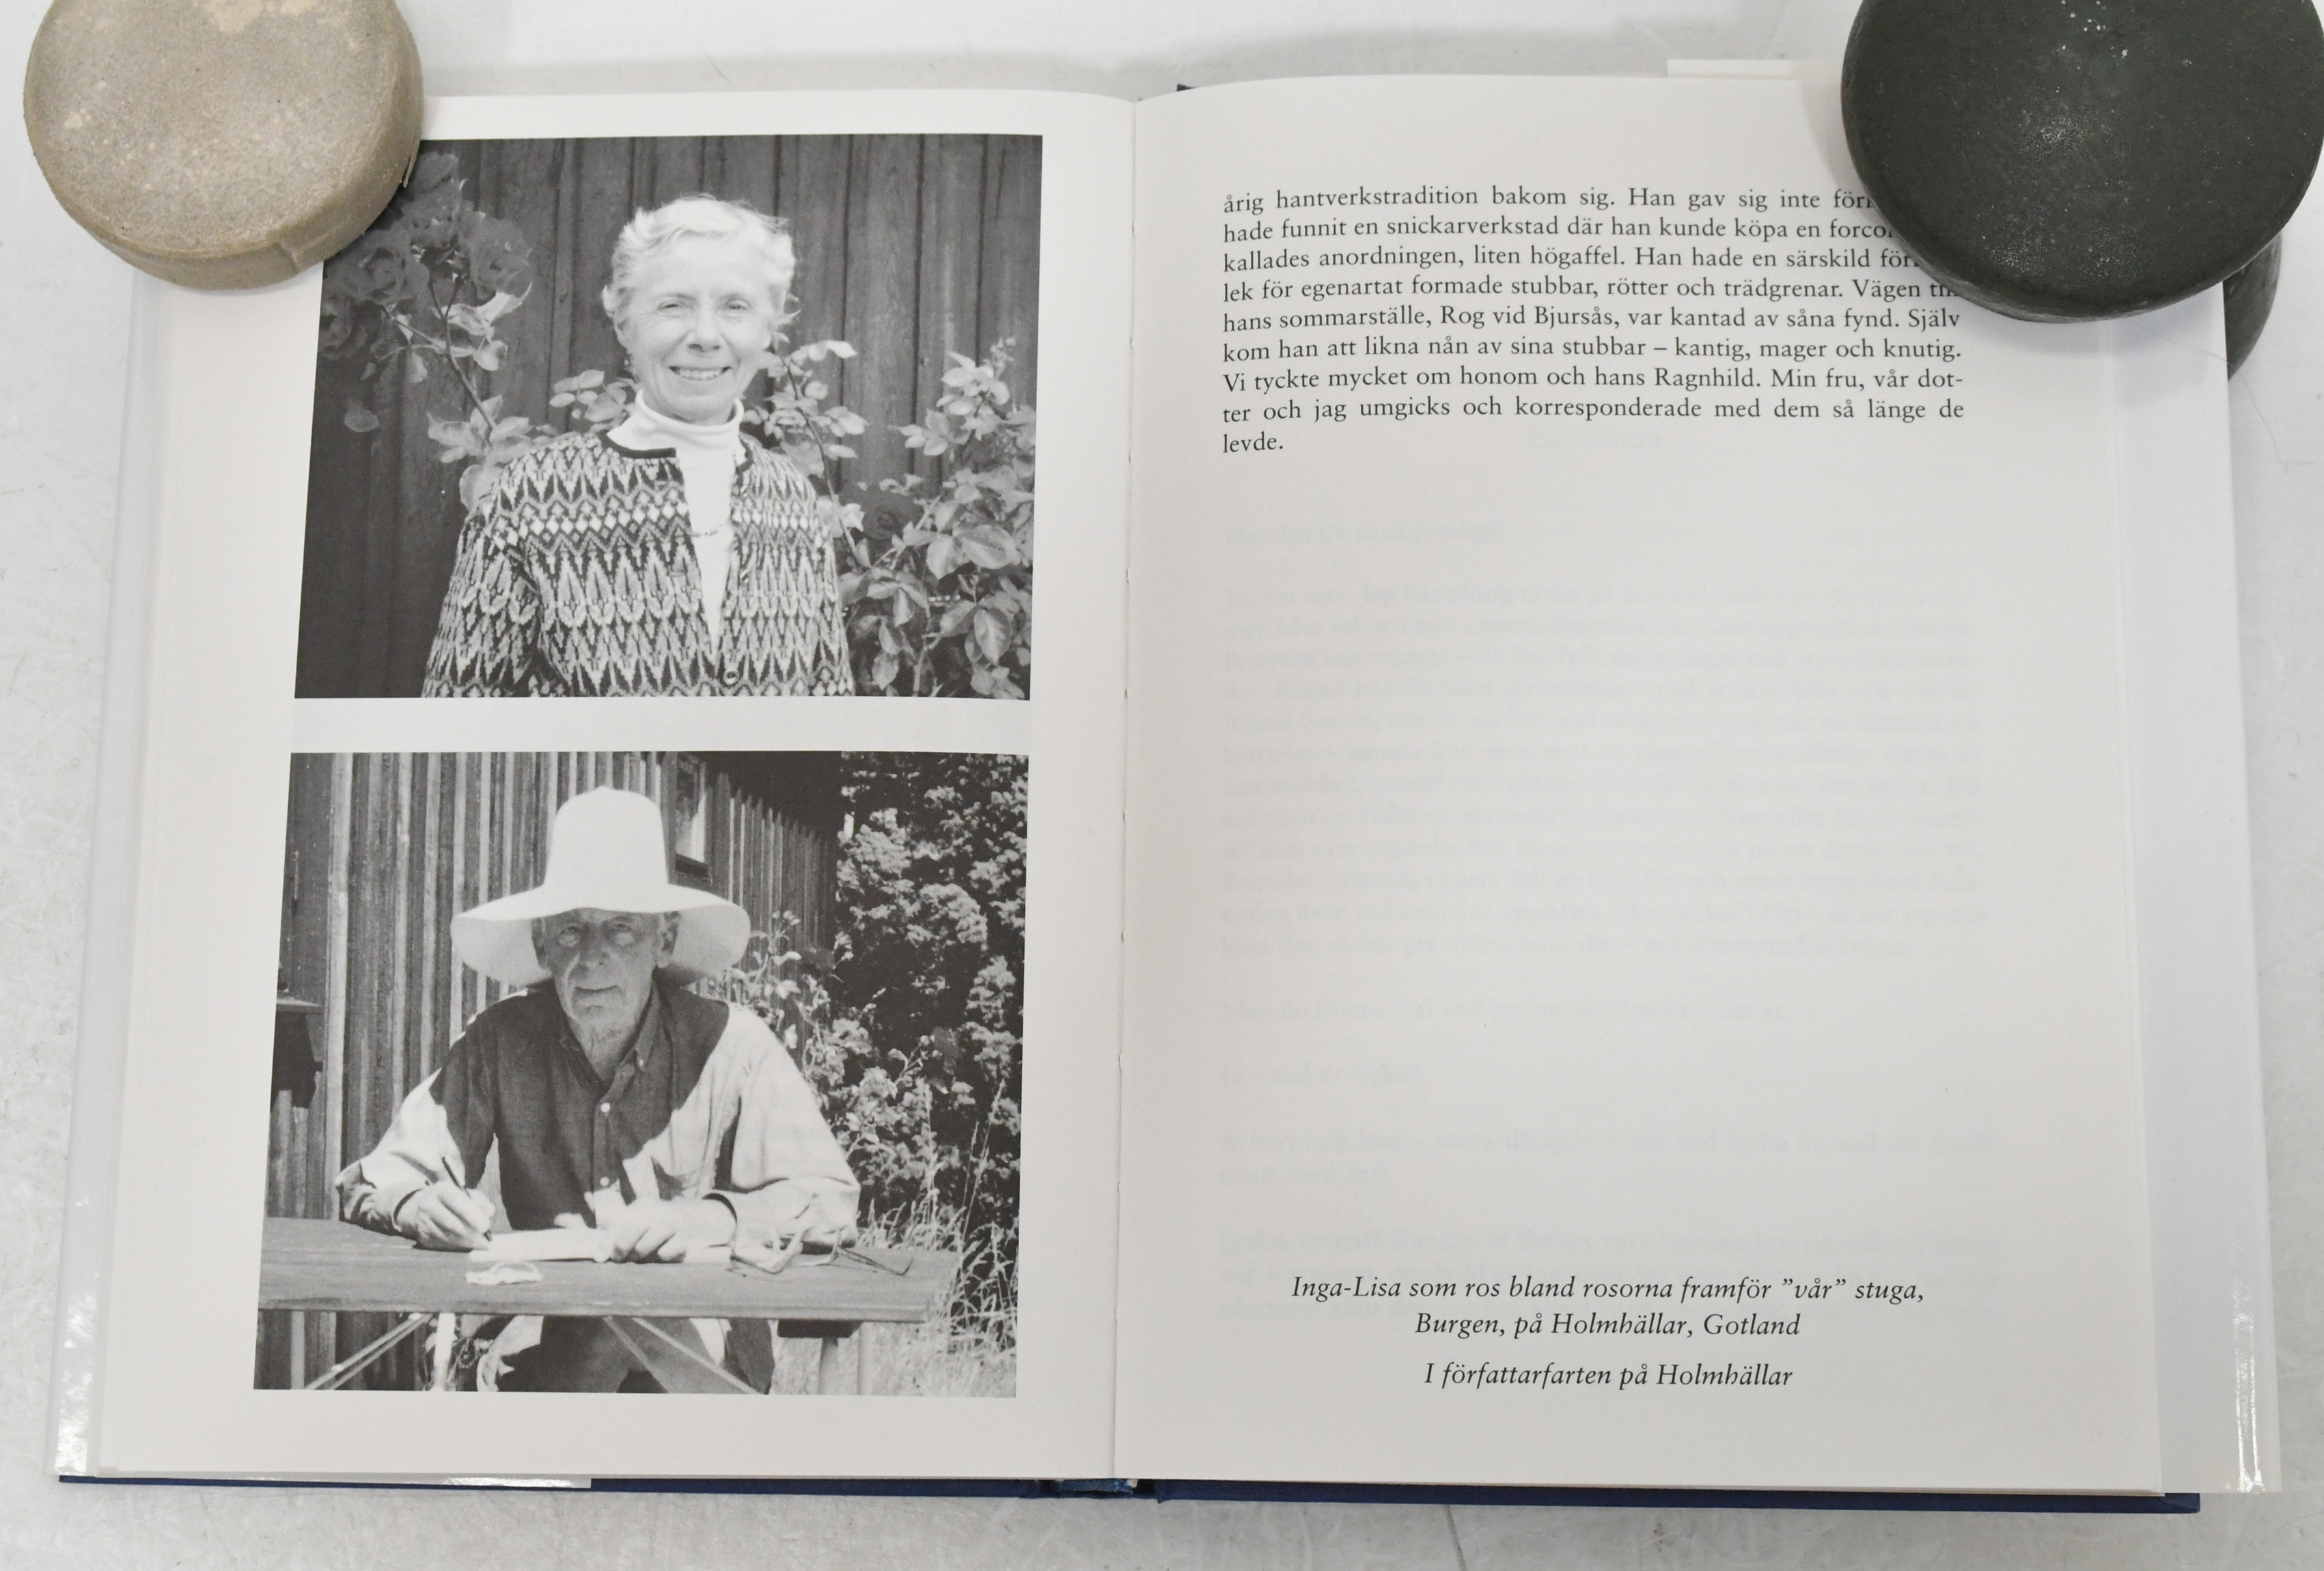 årig hantverkstradition bakom sig. Han gav sig inte
hade funnit en snickarverkstad där han kunde köpa en
kallades anordningen, liten högaffel. Han hade en särskild
lek för egenartat formade stubbar, rötter och trädgrenar. Vägen
hans sommarställe, Rog vid Bjursås, var kantad av såna fynd. Själv
kom han att likna nån av sina stubbar – kantig, mager och knutig.
Vi tyckte mycket om honom och hans Ragnhild. Min fru, vår dot-
ter och jag umgicks och korresponderade med dem så länge de
levde.
Inga-Lisa som ros bland rosorna framför ”vår” stuga,
Burgen, på Holmhällar, Gotland
I författarfarten på Holmhällar